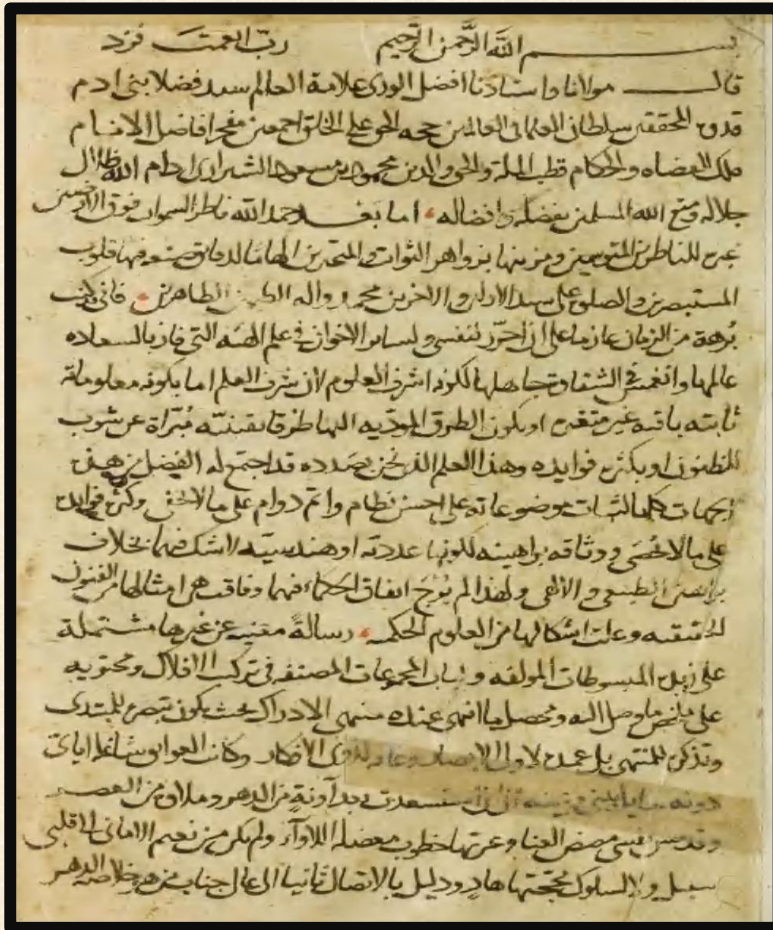 بسم الله الرحمن الرحيم رب انعمت فزد
قال مولانا واستادنا افضل الورى علامة العالم سيد فضلا بنى ادم
قدوة المحققين سلطان العلما فى العالمين حجه الحق على الخلق اجمعين مفخر افاضل الانام
ملك القضاه والحكام قطب الملة والحق والدين محمود بن مسعود الشيرازى ادام الله ظلال
جلاله ومتع الله المسلمين بفضله وافضاله اما بعد حمد الله فاطر السموات فوق الارضين
عبرة للناظرين المتوسمين ومزينها بزواهر الثوابت والمتحيرين الهاما لدقايق صنعه فيها قلوب
المستبصرين والصلوة على سيد الاولين والاخرين محمد واله الطيبين الطاهرين فانى كنت
برهة من الزمان عازما على ان احرر لنفسى ولساير الاخوان فى علم الهيئه التى فاز بالسعاده
عالمها وانغمس فى الشقاوة جاهلها لكونه اشرف العلوم لان شرف العلم اما بكونه معلوماته
ثابته باقيه غير متغيره او بكون الطرق الموديه اليها طرقا يقينيه مبراة عن شوب
الظنون او بكثرة فوايده وهذا العلم الذى نحن بصدده قد اجتمع له الفضل من هذه
الجهات كلها لثبات موضوعاته على احسن نظام واتم دوام على ما لا يخفى وكثرة فوايده
على ما لا يحصى ووثاقه براهينه لكونها عدديه او هندسيه لا شك فيها بخلاف
براهين الطبيعى والالهى ولهذا لم يرج اتفاق الحكماء فيها وفاقت هى امثالها من الفنون
الحقيقيه وعلت اشكالها من العلوم الحكميه رسالة مغنيه عن غيرها مشتملة
على زبدة المبسوطات المولفه ولباب المجموعات المصنفه فى تركيب الافلاك ومحتويه
على تلخيص ما وصل اليه ومحصل ما انتهى عنده منتهى الادراك بحيث يكون تبصرة للمبتدى
وتذكرة للمنتهى بل عمدة لاولى الابصار لذوى الافكار وكانت العوائق شاغلة اياى
دونه بينى وبينه الى ان استسعدت بعد آونة من الدهر وملاوة من العصر
وقد مس نفسى مضض العنا وعرتها خطوب معضلة اللاوآء ولم يكن من نعيم الامانى الى قلبى
سبيل ولا لسلوك محجتها هاد ودليل بالاتصال ثانيا الى عالى جناب من هو خلاصه الدهر